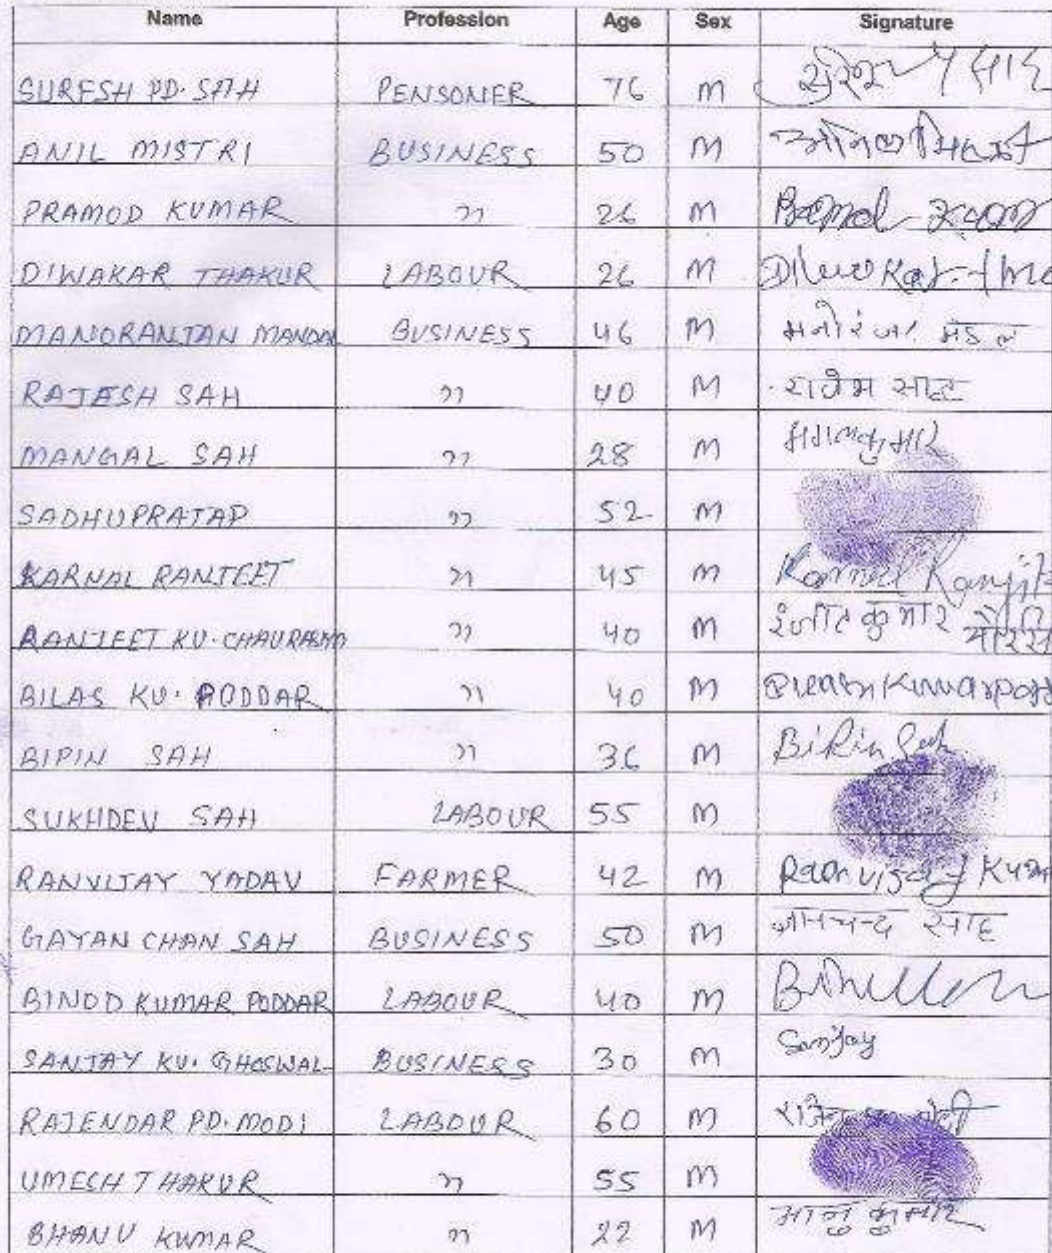 Name Profession Age Sex Signature
SURESH PD. SAH PENSONER 76 M
ANIL MISTRI BUSINESS 50 M अनिल मिस्त्री
PRAMOD KUMAR " 26 M
DIWAKAR THAKUR LABOUR 26 M
MANORANJAN MANDAL BUSINESS 46 M मनोरंजन मंडल
RAJESH SAH " 40 M राजेश साह
MANGAL SAH " 28 M
SADHUPRATAP " 52 M
KARNAL RANJEET " 45 M
RANJEET KU. CHAURASIA " 40 M रंजीत कुमार
BILAS KU. PODDAR " 40 M
BIPIN SAH " 36 M Bipin Sah
SUKHDEV SAH LABOUR 55 M
RANVIJAY YADAV FARMER 42 M
GAYAN CHAN SAH BUSINESS 50 M साह
BINOD KUMAR PODDAR LABOUR 40 M
SANJAY KU. GHOSWAL BUSINESS 30 M Sanjay
RAJENDAR PD. MODI LABOUR 60 M
UMESH THAKUR " 55 M
BHANU KUMAR " 22 M भानु कुमार